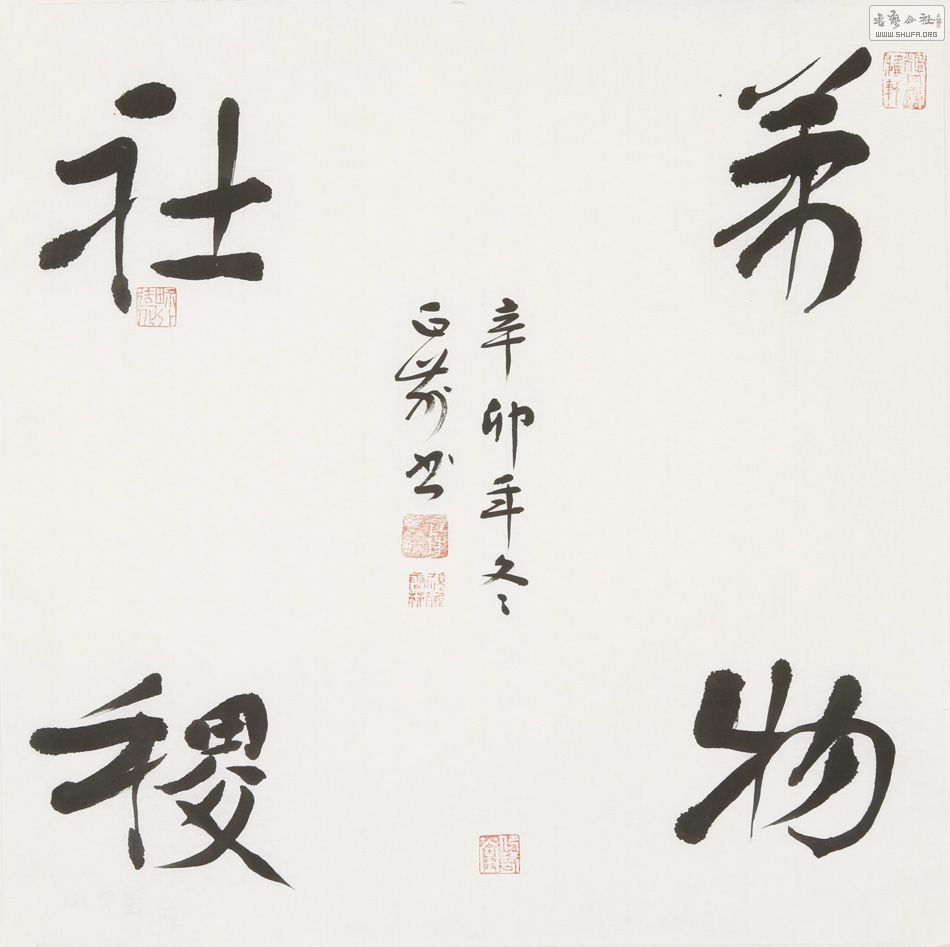 萬物
社稷
辛卯年冬
书
書藝公社
WWW.SHUFA.ORG